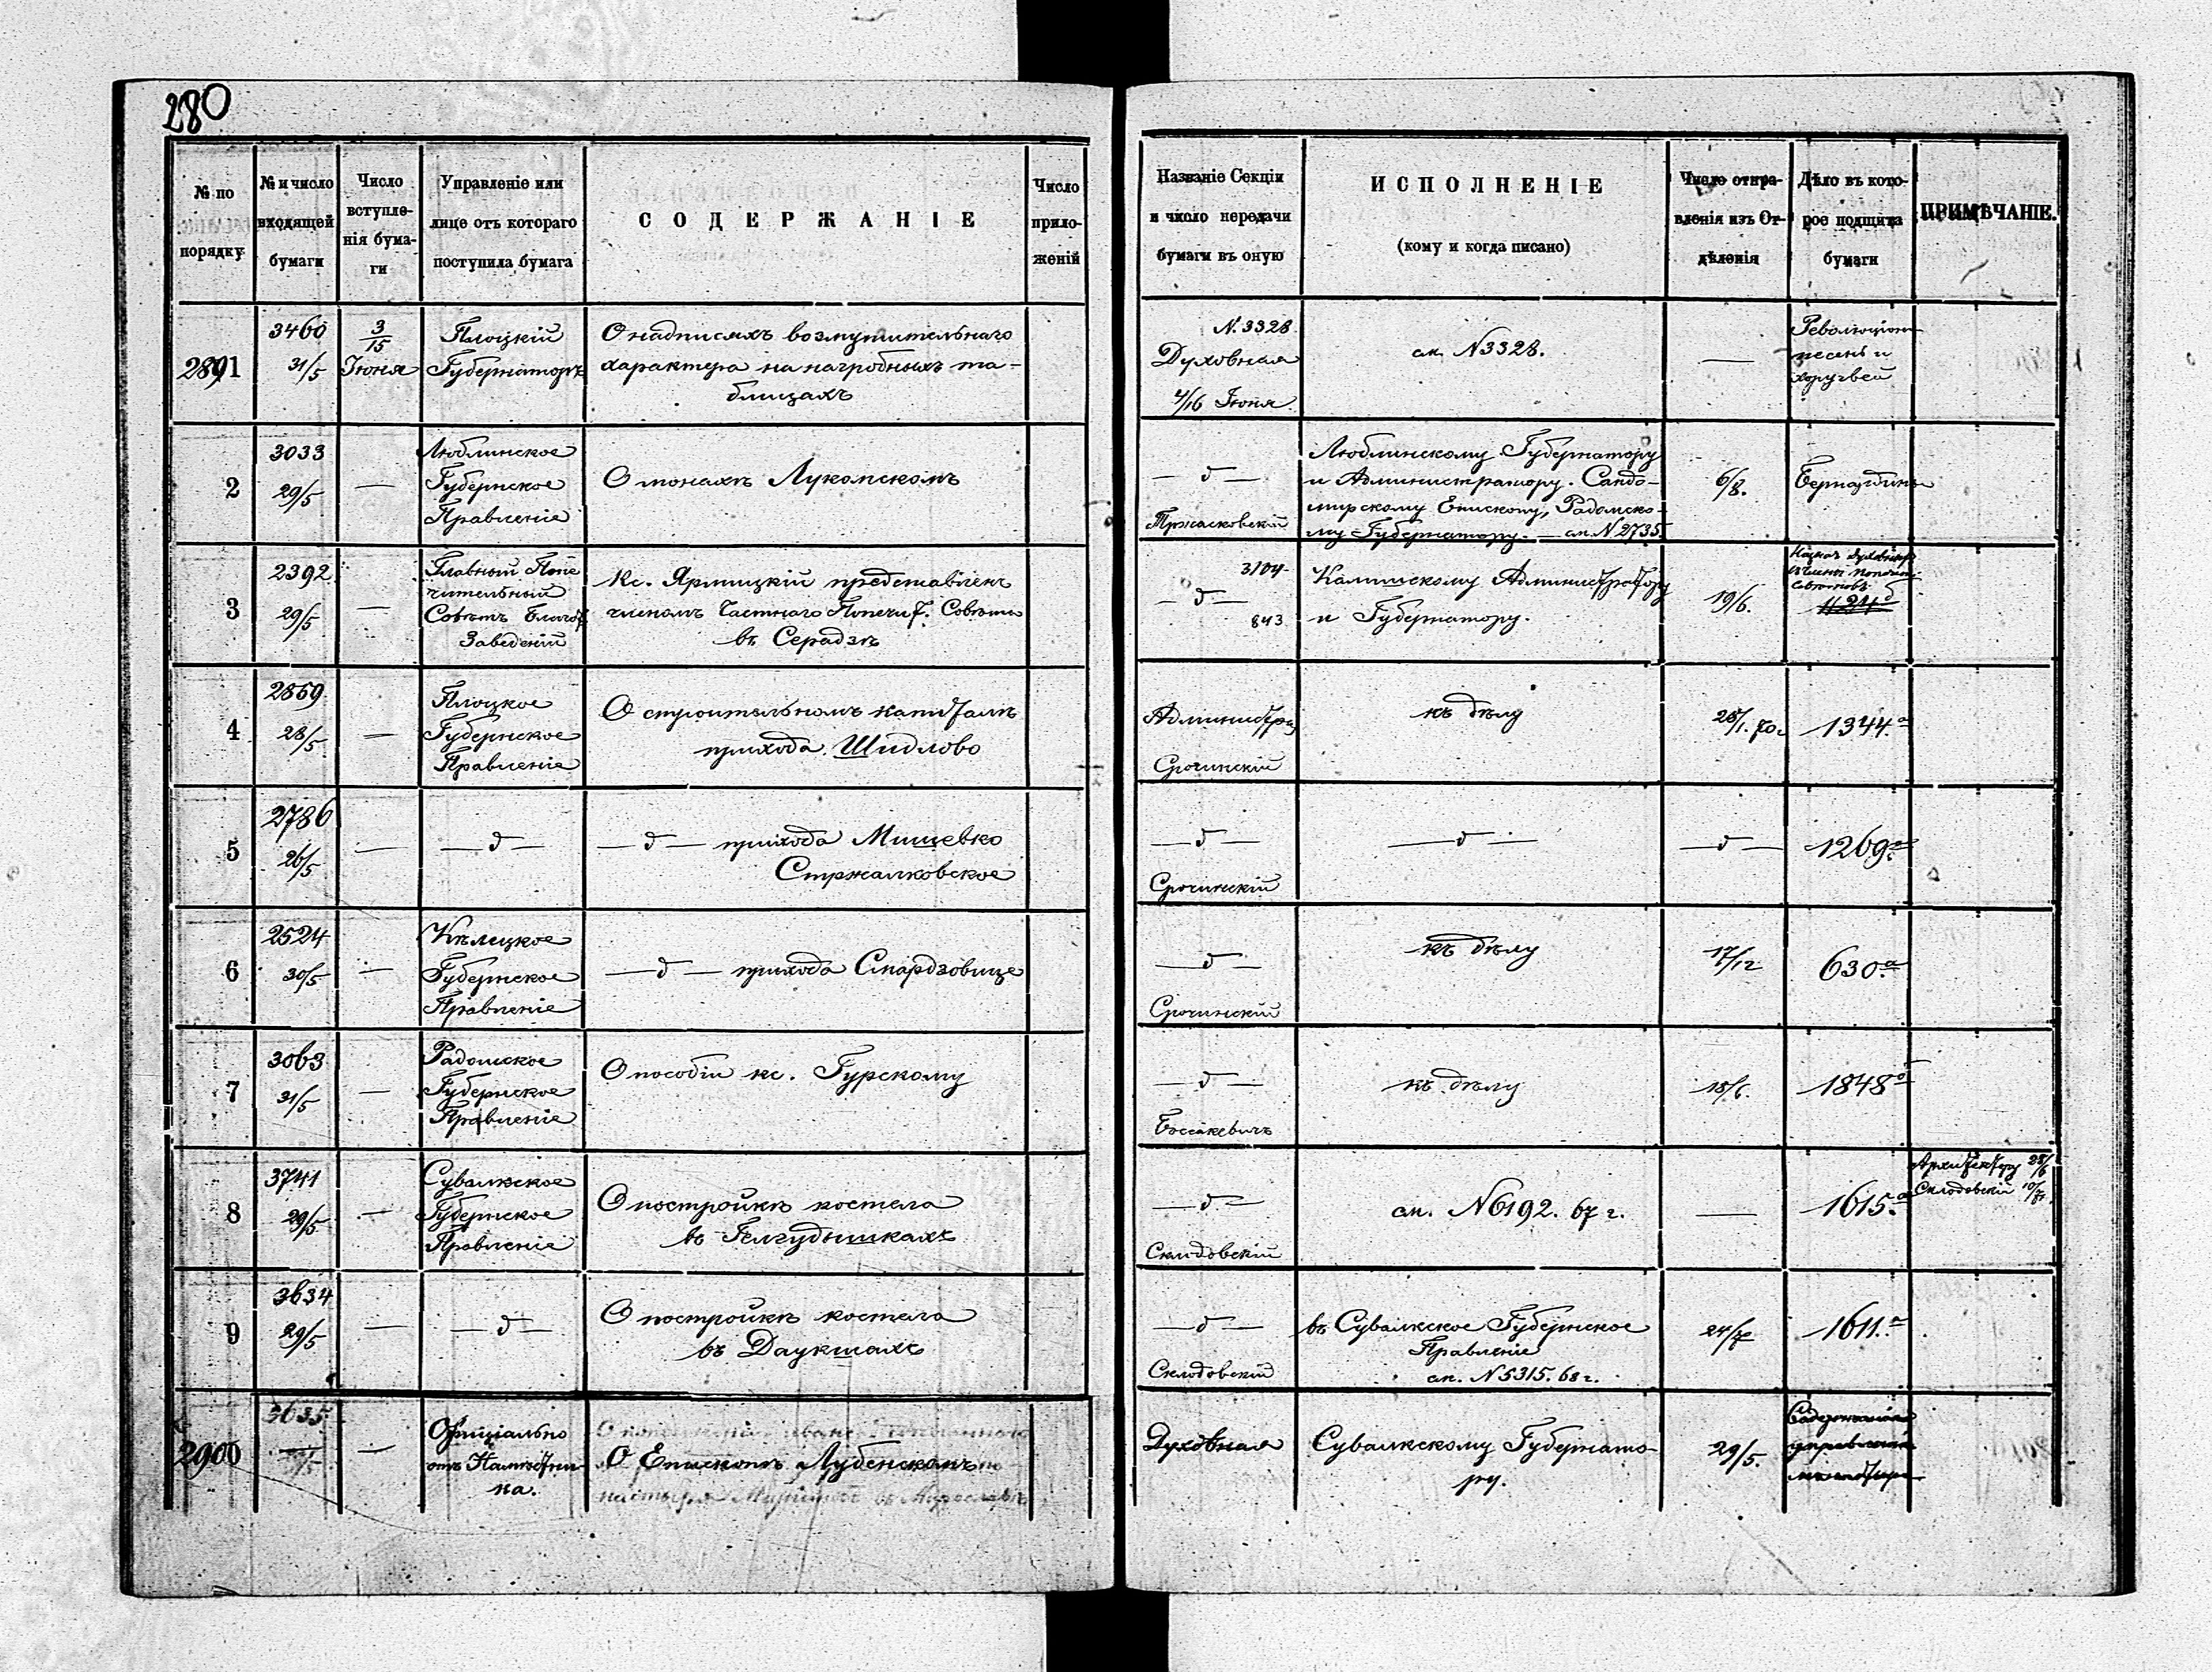 280
№ по
порядку
№ и число
входящей
бумаги
Число
вступле-
нія бума-
ги
Управленіе или
лице отъ котораго
поступила бумага
СОДЕРЖАНІЕ
Число
прило-
женій
Названіе Секціи
и число передачи
бумаги въ оную
ИСПОЛНЕНІЕ
(кому и когда писано)
Число отпра-
вленія изъ От-
дѣленія
Дѣло въ кото-
рое подшита
бумаги
ПРИМѢЧАНІЕ.
2891
3460
31/5
3/15
Іюня
Плоцкій
Губернаторъ
О надписяхъ возмутительнаго
характера на нагробныхъ та-
блицахъ
N. 3328
Духовная
4/16 Іюня
см. N 3328.
—
Революціон
песень и
хоругвей
2
3033
29/5
—
Люблинское
Губернское
Правленіе
О монахѣ Лукомскомъ
— д —
Тржасковскій
Люблинскому Губернатору
и Администратору. Сандо-
мирскому Епископу, Радомско-
му Губернатору. — см. N 2735.
6/8.
Бернардины
3
2392
29/5
—
Главный Попе
чительный
Совѣтъ Благот
Заведеній
Кс. Ярмицкій представленъ
членомъ Частнаго Попечит. Совѣта
въ Серадзѣ
3104
— д —
843
Калишскому Администратору
и Губернатору.
19/6.
4
2869
28/5
—
Плоцкое
Губернское
Правленіе
О строительномъ капиталѣ
прихода Шидлово
Администрац
Срочинскій
къ дѣлу
28/1. 70.
1344 а
5
2786
26/5
—
— д —
— д — прихода Мишевко
Стржалковское
— д —
Срочинскій
— д —
— д —
1269 а
6
2524
30/5
—
Кѣлецкое
Губернское
Правленіе
— д — прихода Смардзовице
— д —
Срочинскій
къ дѣлу
17/12
630 а
7
3063
31/5
—
Радомское
Губернское
Правленіе
О пособіи кс. Гурскому
— д —
Боссакевичъ
къ дѣлу
18/6.
1848 д
8
3741
29/5
—
Сувалкское
Губернское
Правленіе
О постройкѣ костела
въ Гелгудышкахъ
— д —
Склодовскій
см. N 6192. 67 г.
—
1615 а
Архитектору 28/6
Склодовскій
9
3634
29/5
—
— д —
О постройкѣ костела
въ Даукшахъ
— д —
Склодовскій
въ Сувалкское Губернское
Правленіе
см. N 5315. 68 г.
1611. а
2900
3635
—
Офиціально
отъ Намѣстни-
ка.
О Епископѣ Лубенскомъ
Духовная
Сувалкскому Губернато-
ру.
29/5.